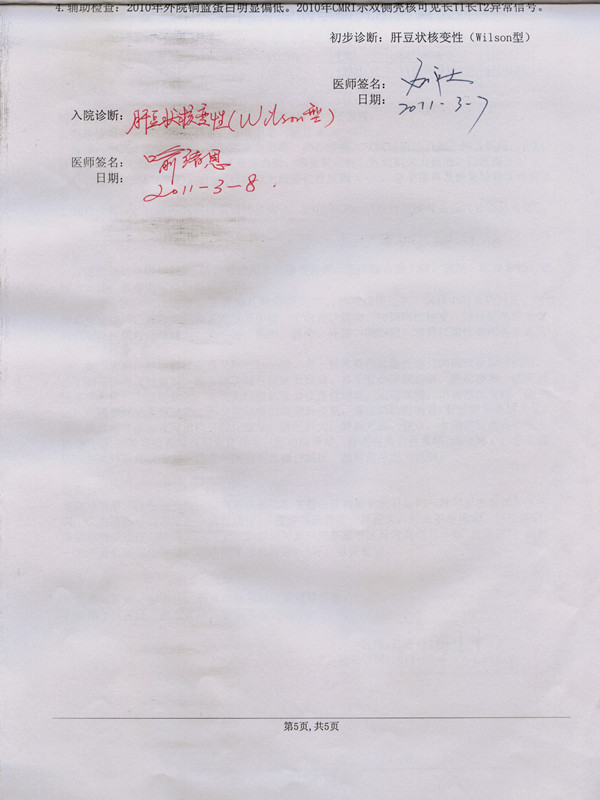 4.辅助检查：2010年外院铜蓝蛋白明显偏低。2010年CMRI示双侧壳核可见长T1长T2异常信号。
初步诊断：肝豆状核变性（Wilson型）
医师签名：
日期：2011-3-7
入院诊断：肝豆状核变性(Wilson型)
医师签名：
日期：2011-3-8.
第5页,共5页